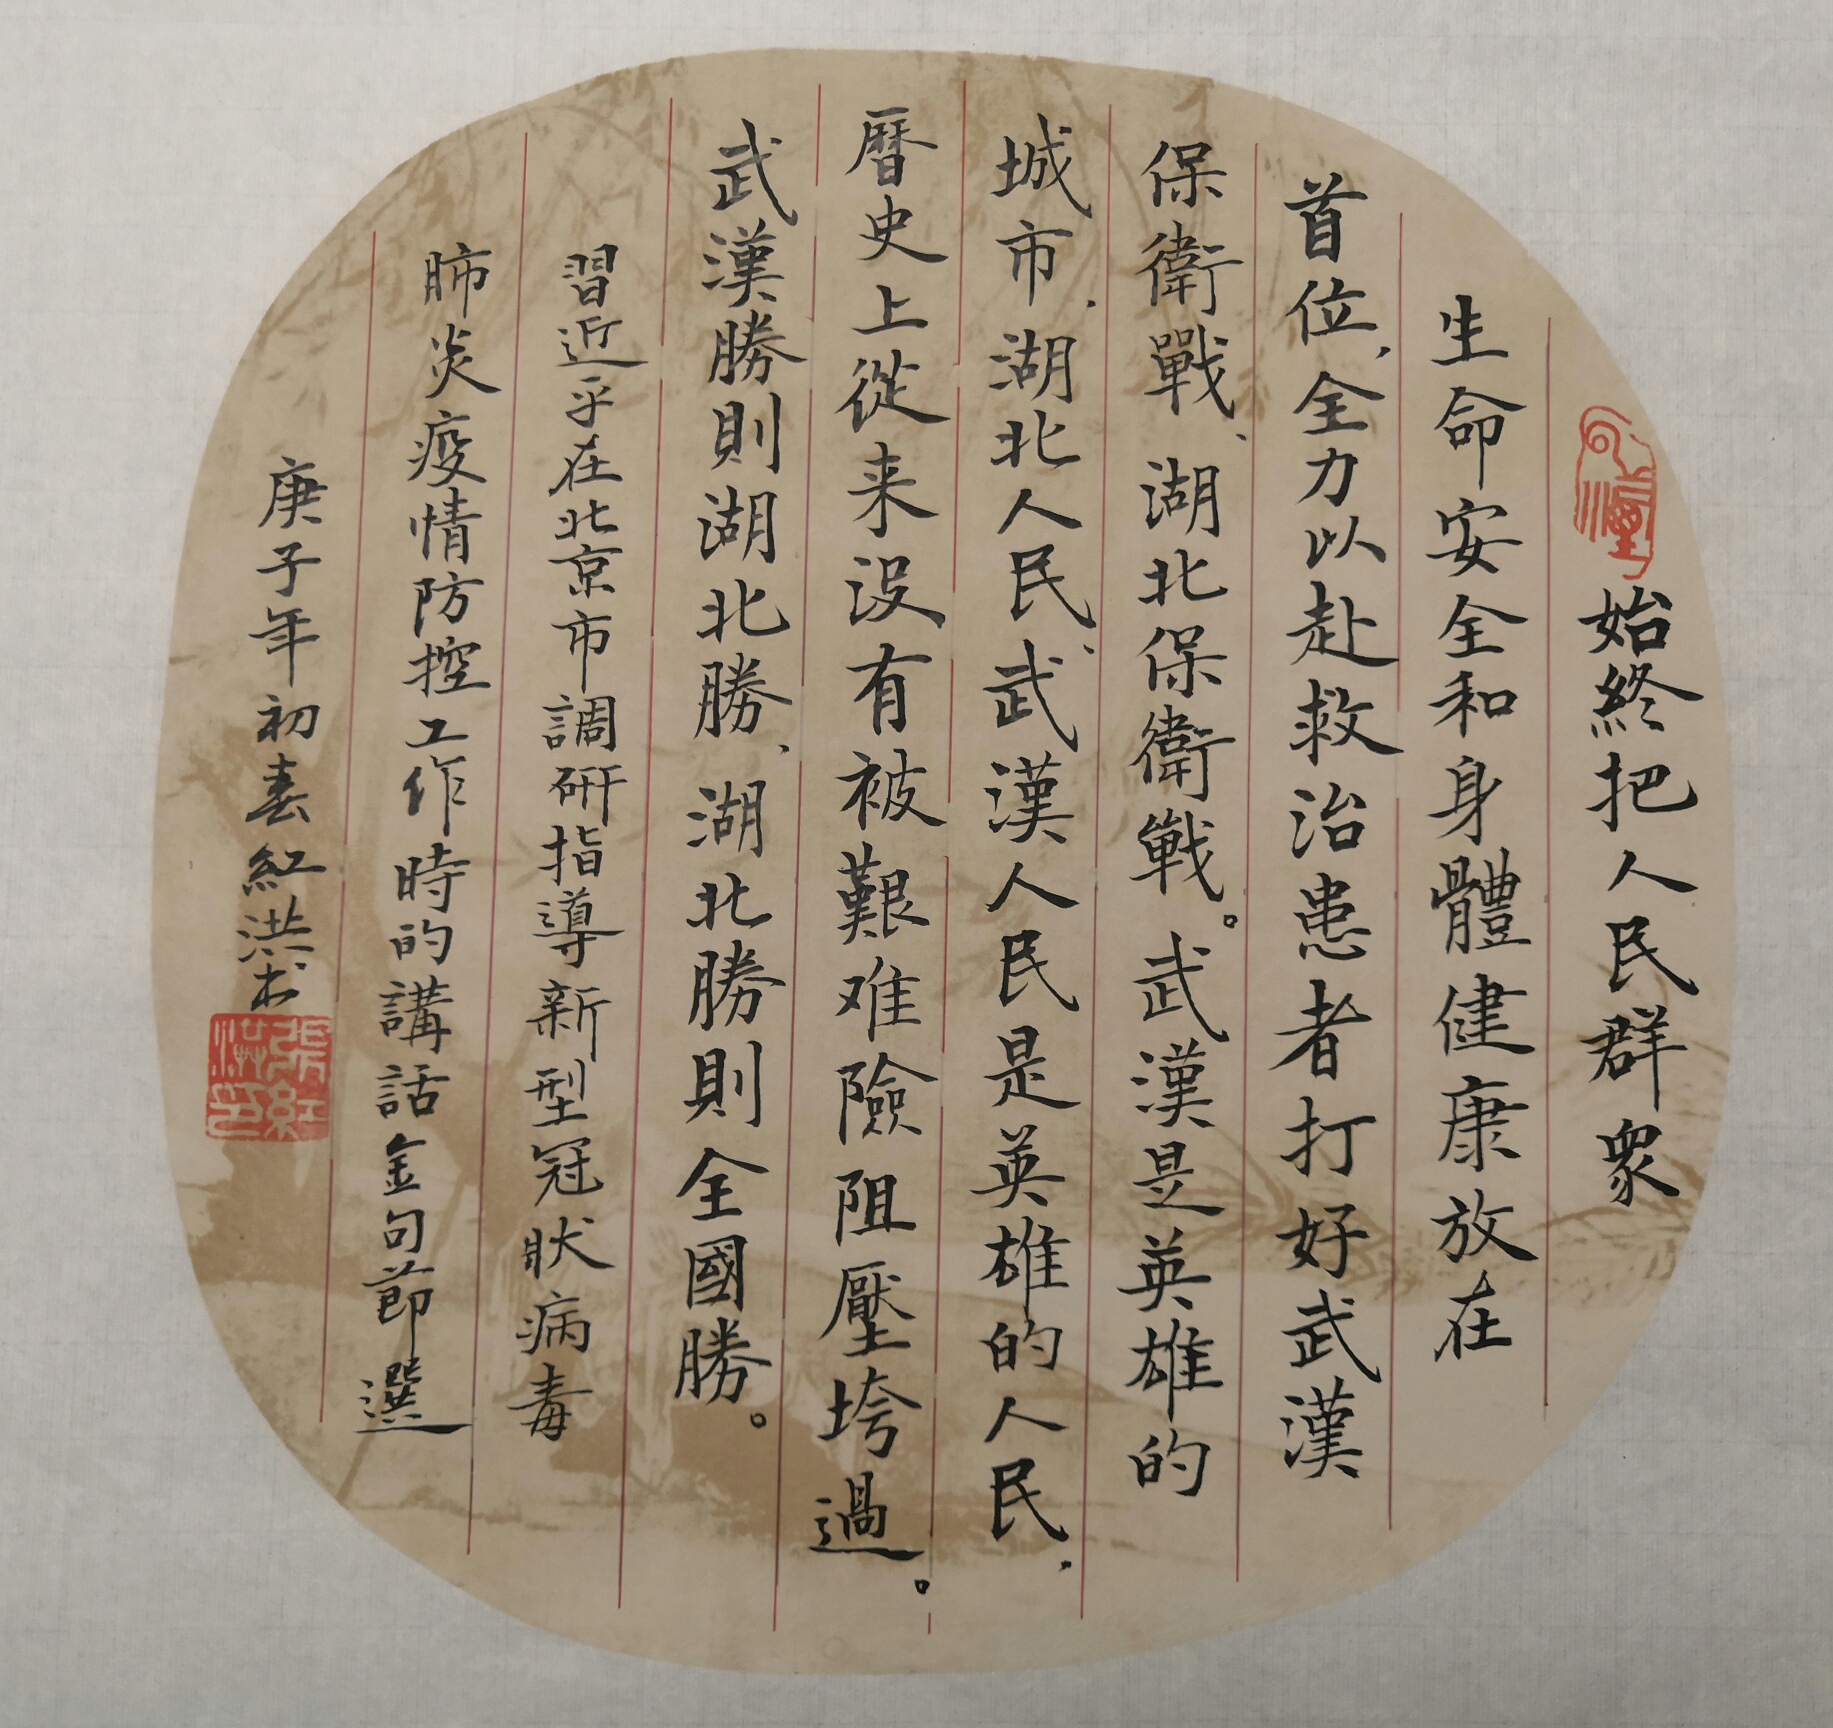 始終把人民群衆
生命安全和身體健康放在
首位,全力以赴救治患者打好武漢
保衛戰、湖北保衛戰。武漢是英雄的
城市,湖北人民、武漢人民是英雄的人民,
曆史上從来没有被艱难險阻壓垮過。
武漢勝則湖北勝、湖北勝則全國勝。
習近平在北京市調研指導新型冠狀病毒
肺炎疫情防控工作時的講話金句節選
庚子年初春紅洪书
張紅洪印